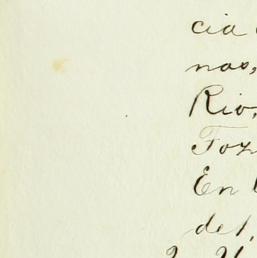 cia
nas,
Rio,
Foz
En
del,